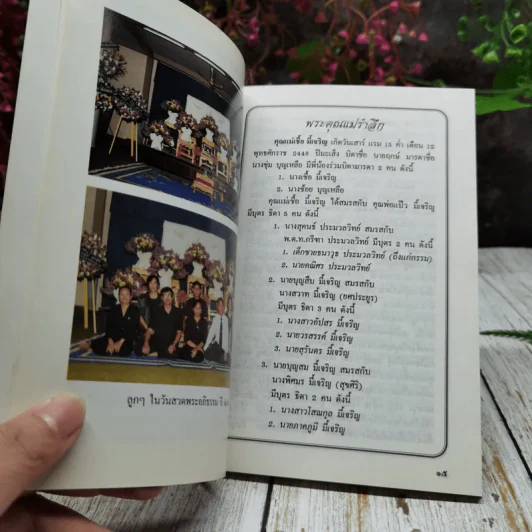 ลูกๆ ในวันสวดพระอภิธรรม
พระคุณแม่รำลึก
คุณแม่เชื้อ มี้เจริญ เกิดวันเสาร์ แรม 15 ค่ำ เดือน 12
พุทธศักราช 2448 ปีมะเส็ง บิดาชื่อ นายฤกษ์ มารดาชื่อ
นางชุ่ม บุญเหลือ มีพี่น้องร่วมบิดามารดา 2 คน ดังนี้
1. นางเชื้อ มี้เจริญ
2. นางช้อย บุญเหลือ
คุณแม่เชื้อ มี้เจริญ ได้สมรสกับ คุณพ่อแป๊ว มี้เจริญ
มีบุตร ธิดา 5 คน ดังนี้
1. นางสุคนธ์ ประมวลวิทย์ สมรสกับ
พ.ต.ท.กรีฑา ประมวลวิทย์ มีบุตร 2 คน ดังนี้
1. เด็กชายธนาวุธ ประมวลวิทย์ (ถึงแก่กรรม)
2. นายคณิศร ประมวลวิทย์
2. นายบุญสืบ มี้เจริญ สมรสกับ
นางสวาท มี้เจริญ (ยศประยูร)
มีบุตร ธิดา 3 คน ดังนี้
1. นางสาวอัปสร มี้เจริญ
2. นายวรสรรค์ มี้เจริญ
3. นายสุรันตร มี้เจริญ
3. นายบุญสม มี้เจริญ สมรสกับ
นางพิศมร มี้เจริญ (สุขศิริ)
มีบุตร ธิดา 2 คน ดังนี้
1. นางสาวโสณกุล มี้เจริญ
2. นายภาคภูมิ มี้เจริญ
๑๕